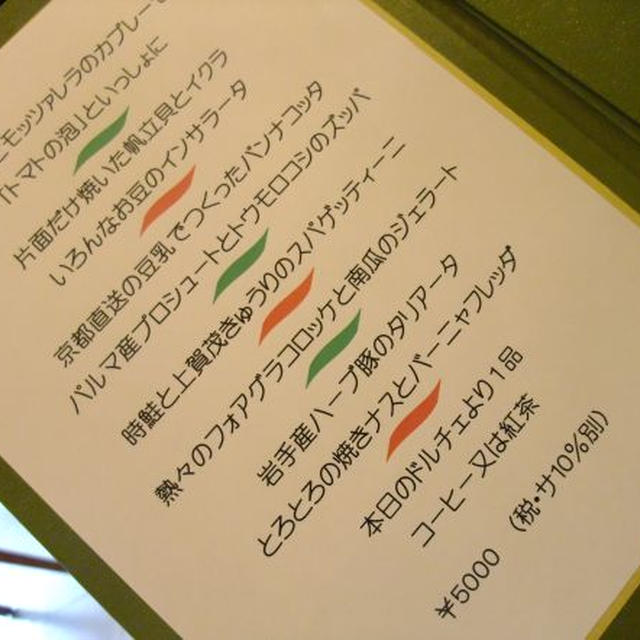 モッツァレラのカプレーゼ
「トマトの泡」といっしょに
片面だけ焼いた帆立貝とイクラ
いろんなお豆のインサラータ
京都直送の豆乳でつくったパンナコッタ
パルマ産プロシュートとトウモロコシのズッパ
時鮭と上賀茂きゅうりのスパゲッティーニ
熱々のフォアグラコロッケと南瓜のジェラート
岩手産ハーブ豚のタリアータ
とろとろの焼きナスとバーニャフレッダ
本日のドルチェより1品
コーヒー又は紅茶
¥5000 (税・サ10%別)